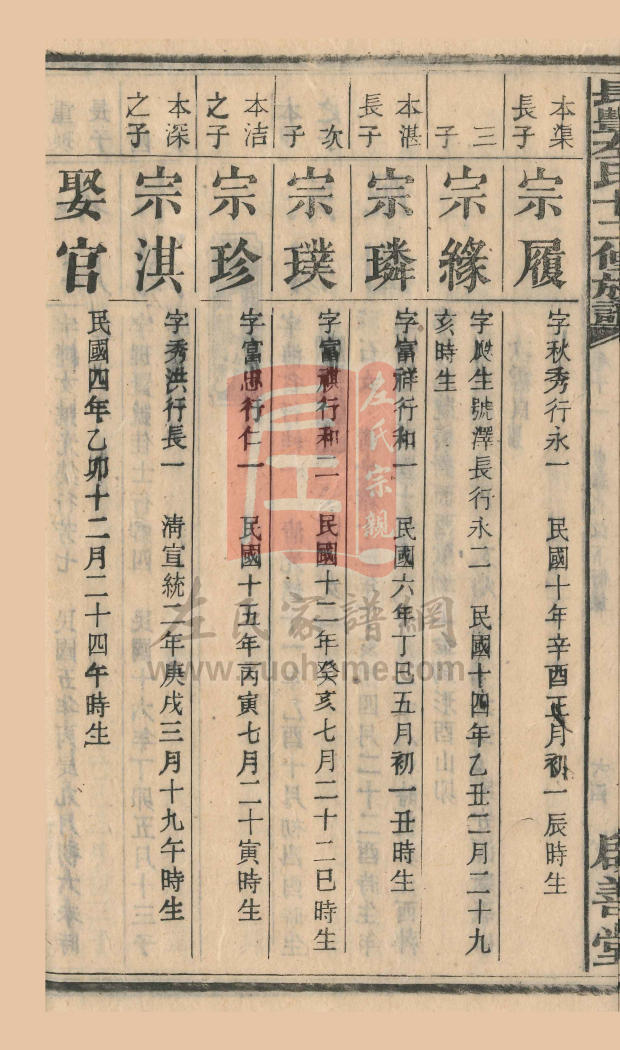 長豐左氏十二修族譜
啟善堂
本集長子
宗履
字秋秀行永一 民國十年辛酉正月初一辰時生
三子
宗緣
字殿生號澤長行永二 民國十四年乙丑三月二十九
亥時生
本湛長子
宗璘
字富祥行和一 民國六年丁巳五月初一丑時生
次子
宗璞
字富祺行和二 民國十二年癸亥七月二十二巳時生
本洁之子
宗珍
字富忠行仁一 民國十五年丙寅七月二十寅時生
本深之子
宗淇
字秀洪行長一 清宣統二年庚戌三月十九午時生
娶官
民國四年乙卯十二月二十四午時生
左氏宗親
左氏家譜網